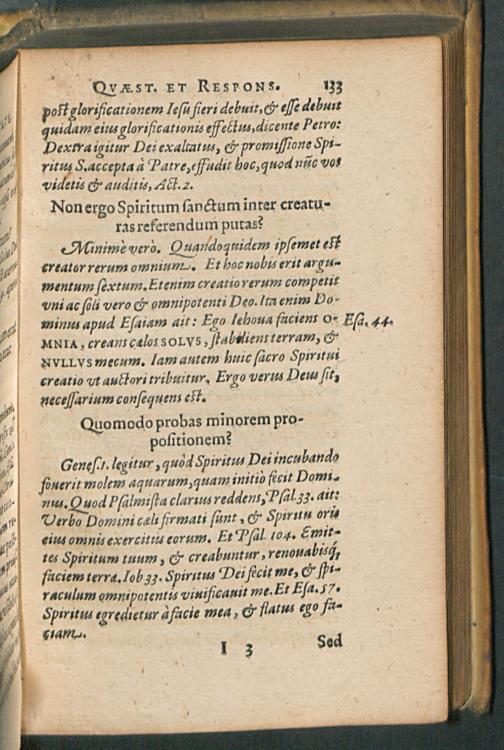 QVÆST. ET RESPONS. 133
post glorificationem Iesu fieri debuit, & esse debuit
quidam eius glorificationis effectus, dicente Petro:
Dextra igitur Dei exaltatus, & promissione Spi-
ritus S. accepta à Patre, effudit hoc, quod nũc vos
videtis & auditis, Act. 2.
Non ergo Spiritum sanctum inter creatu-
ras referendum putas?
Minimè verò. Quandoquidem ipsemet est
creator rerum omnium. Et hoc nobis erit argu-
mentum sextum. Etenim creatio rerum competit
vni ac soli vero & omnipotenti Deo. Ita enim Do-
minus apud Esaiam ait: Ego Iehoua faciens O- Esa. 44.
MNIA, creans cælos SOLVS, stabiliens terram, &
NVLLVS mecum. Iam autem huic sacro Spiritui
creatio vt auctori tribuitur. Ergo verus Deus sit,
necessarium consequens est.
Quomodo probas minorem pro-
positionem?
Genes. 1. legitur, quòd Spiritus Dei incubando
fouerit molem aquarum, quam initio fecit Domi-
nus. Quod Psalmista clarius reddens, Psal. 33. ait:
Verbo Domini cæli firmati sunt, & Spiritu oris
eius omnis exercitus eorum. Et Psal. 104. Emit-
tes Spiritum tuum, & creabuntur, renouabisq́;
faciem terræ. Iob 33. Spiritus Dei fecit me, & spi-
raculum omnipotentis viuificauit me. Et Esa. 57.
Spiritus egredietur à facie mea, & flatus ego fa-
ciam.
I 3 Sed